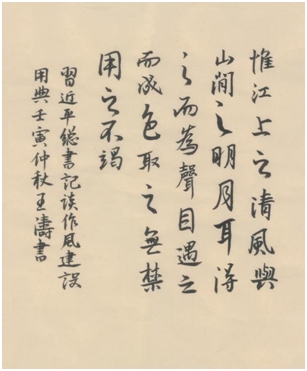 惟江上之清風與
山澗之明月耳得
之而為聲目遇之
而成色取之無禁
用之不竭
習近平總書記談作風建設
用典壬寅仲秋王濤書